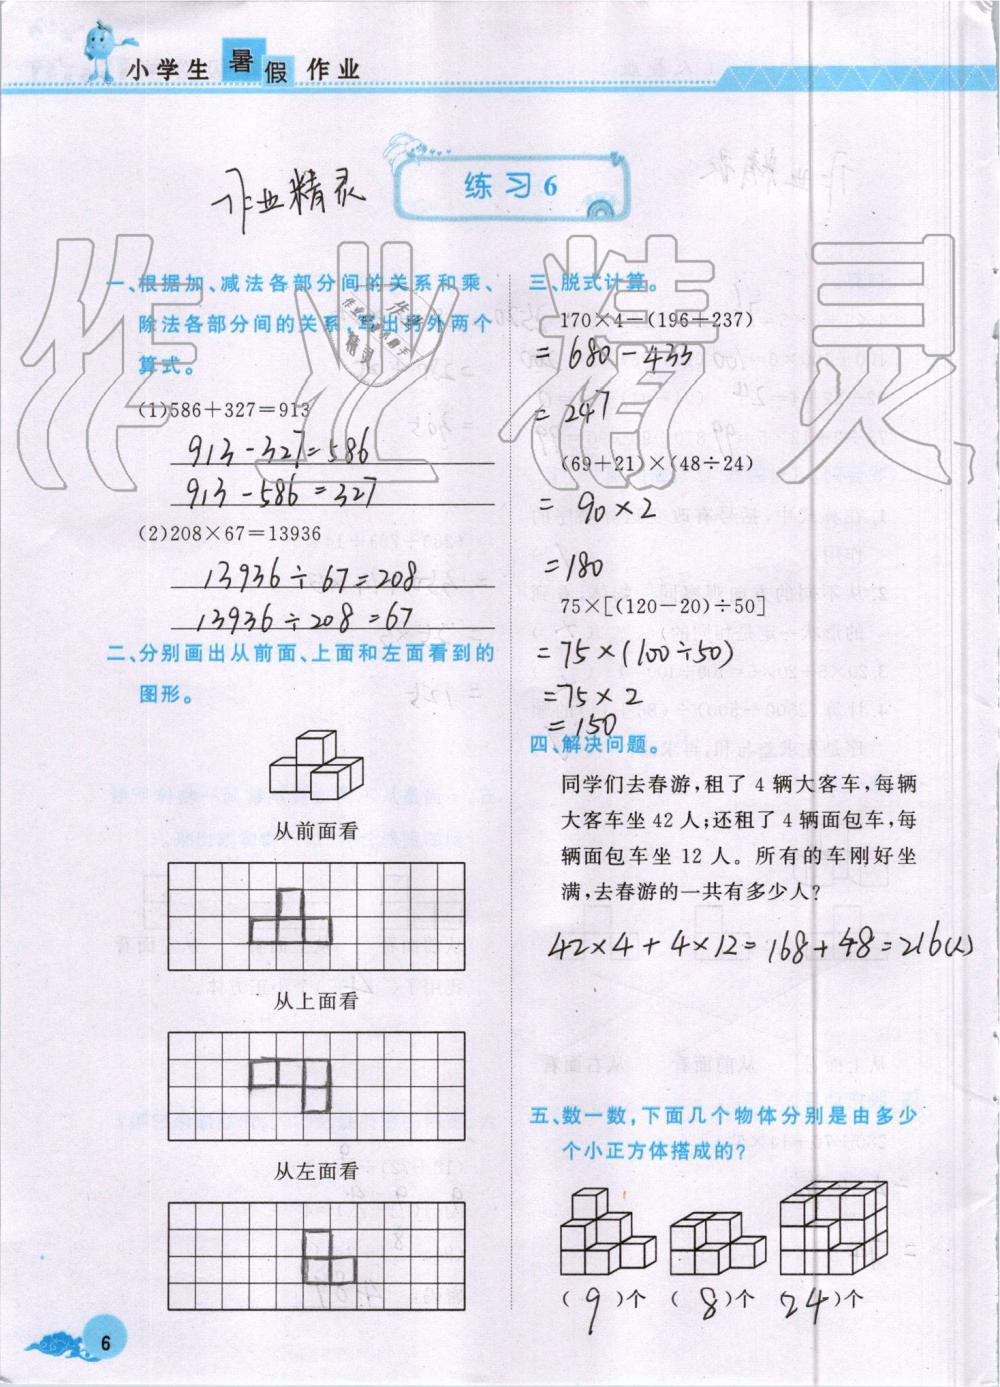 小学生暑假作业
作业精灵
练习6
一、根据加、减法各部分间的关系和乘、
除法各部分间的关系,写出另外两个
算式。
(1)586+327=913
913-327=586
913-586=327
(2)208×67=13936
13936÷67=208
13936÷208=67
二、分别画出从前面、上面和左面看到的
图形。
从前面看
从上面看
从左面看
三、脱式计算。
170×4-(196+237)
=680-433
=247
(69+21)×(48÷24)
=90×2
=180
75×[(120-20)÷50]
=75×(100÷50)
=75×2
=150
四、解决问题。
同学们去春游,租了4辆大客车,每辆
大客车坐42人;还租了4辆面包车,每
辆面包车坐12人。所有的车刚好坐
满,去春游的一共有多少人?
42×4+4×12=168+48=216(人)
五、数一数,下面几个物体分别是由多少
个小正方体搭成的?
(9)个 (8)个 24)个
6
作业精灵